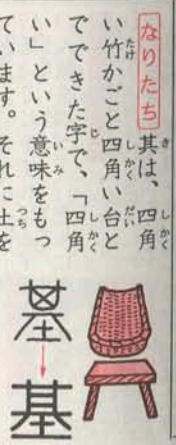 なりたち 其は、四角
い竹かごと四角い台と
でできた字で、「四角
い」という意味をもっ
ています。それに土を
基